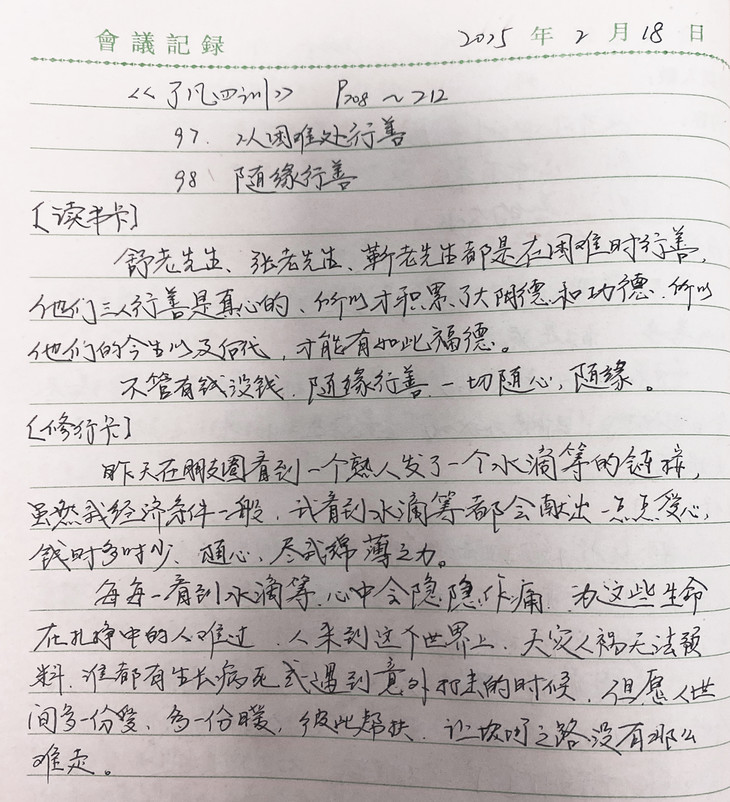 會議記録 2025年2月18日
《了凡四训》 P208~212
97. 从困难处行善
98. 随缘行善
[读书卡]
舒老先生、张老先生、靳老先生都是在困难时行善,
他们三人行善是真心的、所以才积累了大阴德和功德.所以
他们的今生以及后代,才能有如此福德。
不管有钱没钱.随缘行善.一切随心,随缘。
[修行卡]
昨天在朋友圈看到一个熟人发了一个水滴筹的链接,
虽然我经济条件一般.我看到水滴筹都会献出一点点爱心,
钱时多时少、随心、尽我绵薄之力。
每每一看到水滴筹.心中会隐隐作痛.为这些生命
在扎挣中的人难过.人来到这个世界上.天灾人祸无法预
料.谁都有生长病死或遇到意外打击的时候.但愿人世
间多一份爱、多一份暖,彼此帮扶.让坎坷之路没有那么
难走。